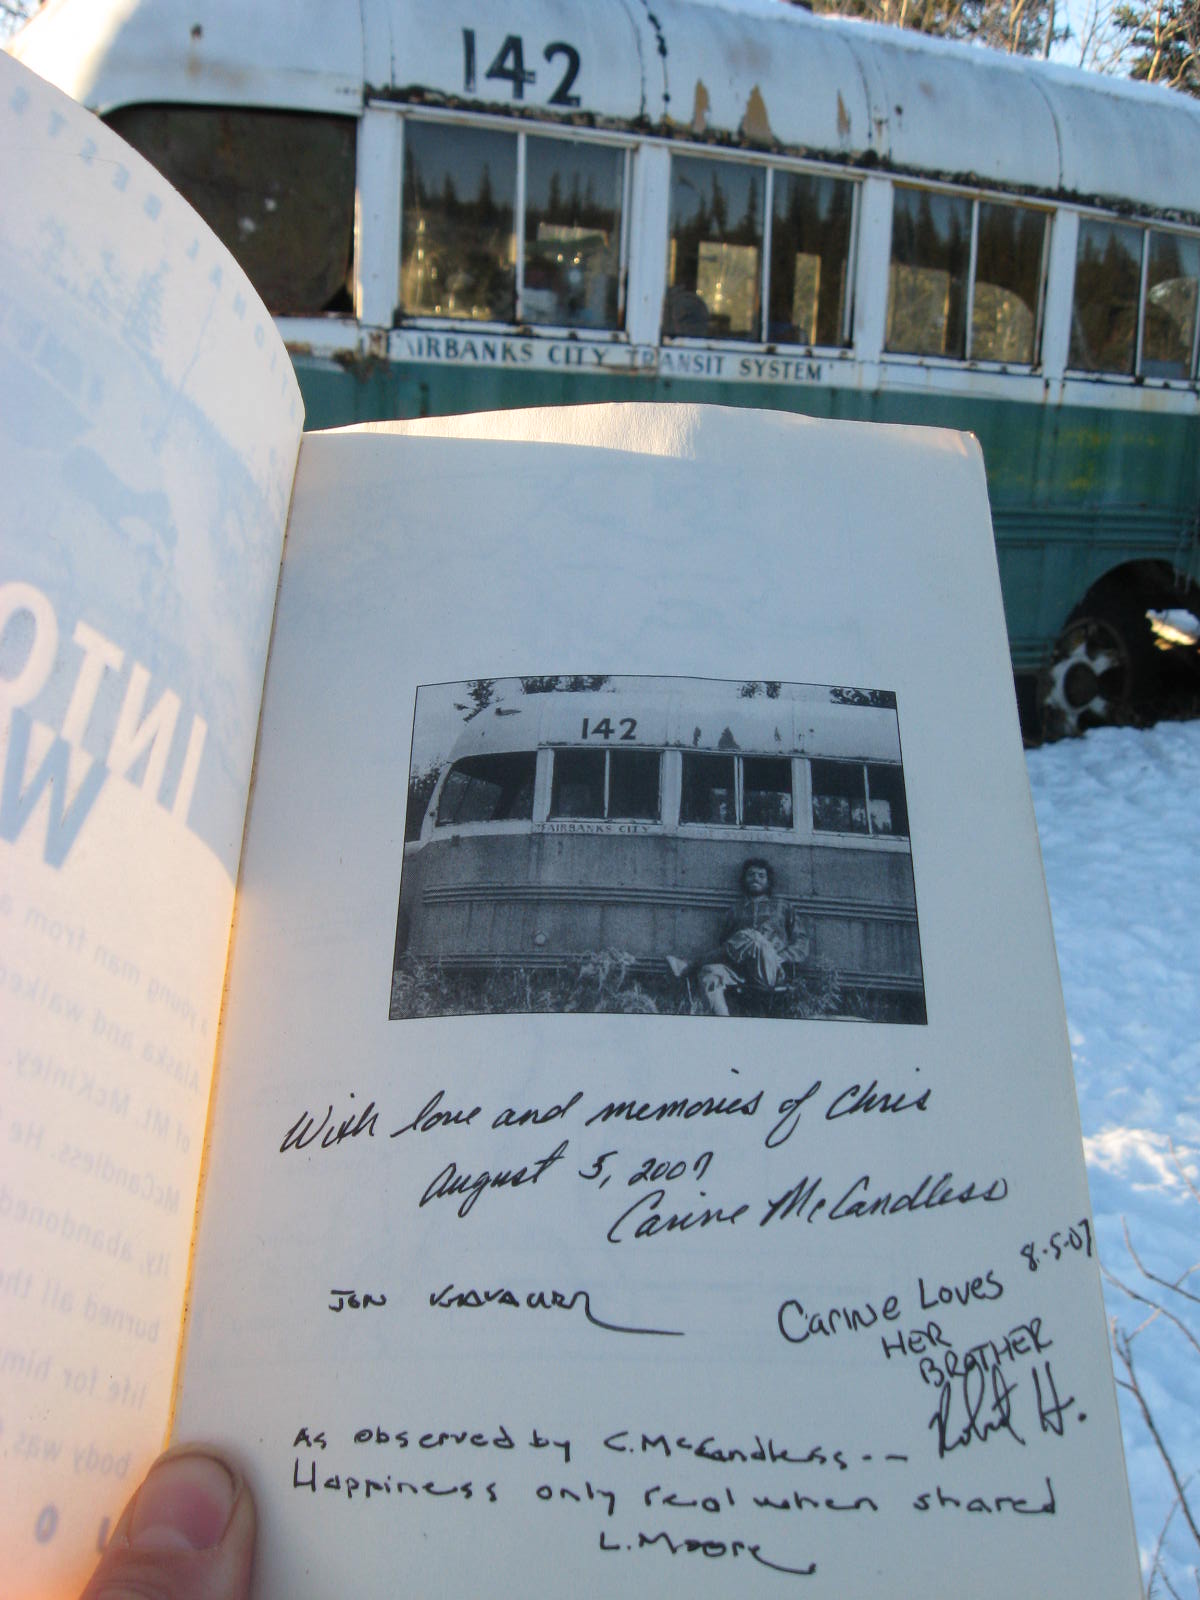 142
FAIRBANKS CITY TRANSIT SYSTEM
INTO
W
young man from a
Alaska and walked
of Mt. McKinley.
McCandless. He
abandoned
burned all the
life for him
body was
142
FAIRBANKS CITY
With love and memories of Chris
August 5, 2007
Carine McCandless
JON KRAKAUER
8.5.07
Carine Loves
HER
BROTHER
Robert H.
As observed by C. McCandless--
Happiness only real when shared
L. Moore